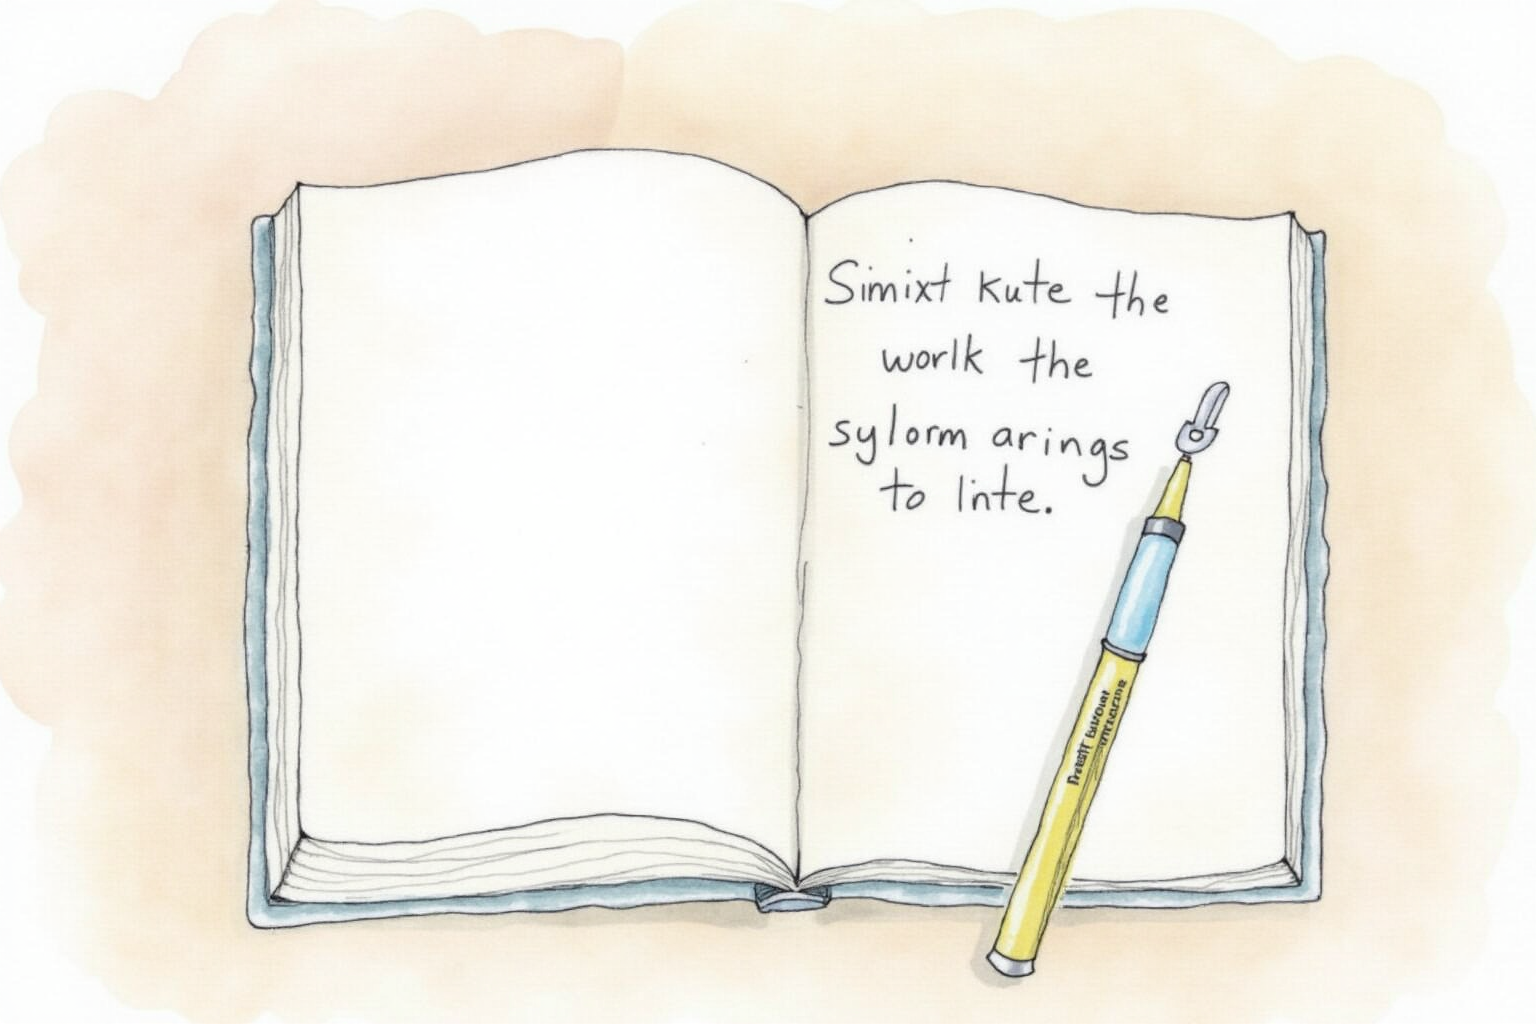 Simixt kute the
worlk the
sylorm arings
to linte.